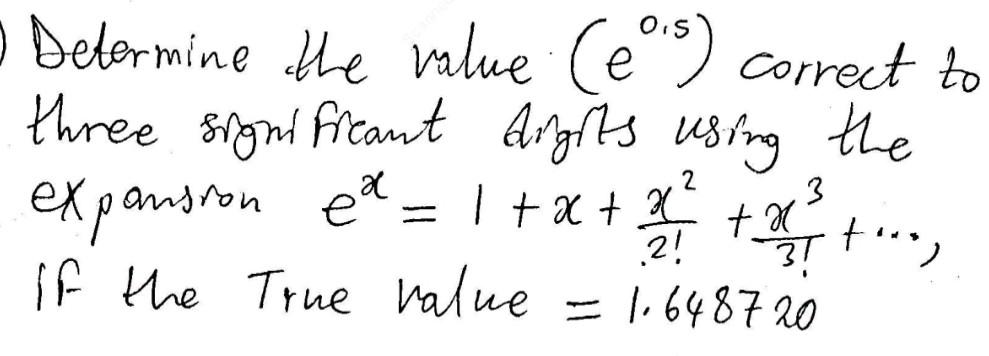 ) Determine the value (e^0.5) correct to
three significant digits using the
expansion e^x = 1 + x + x^2/2! + x^3/3! + ...,
if the True value = 1.648720